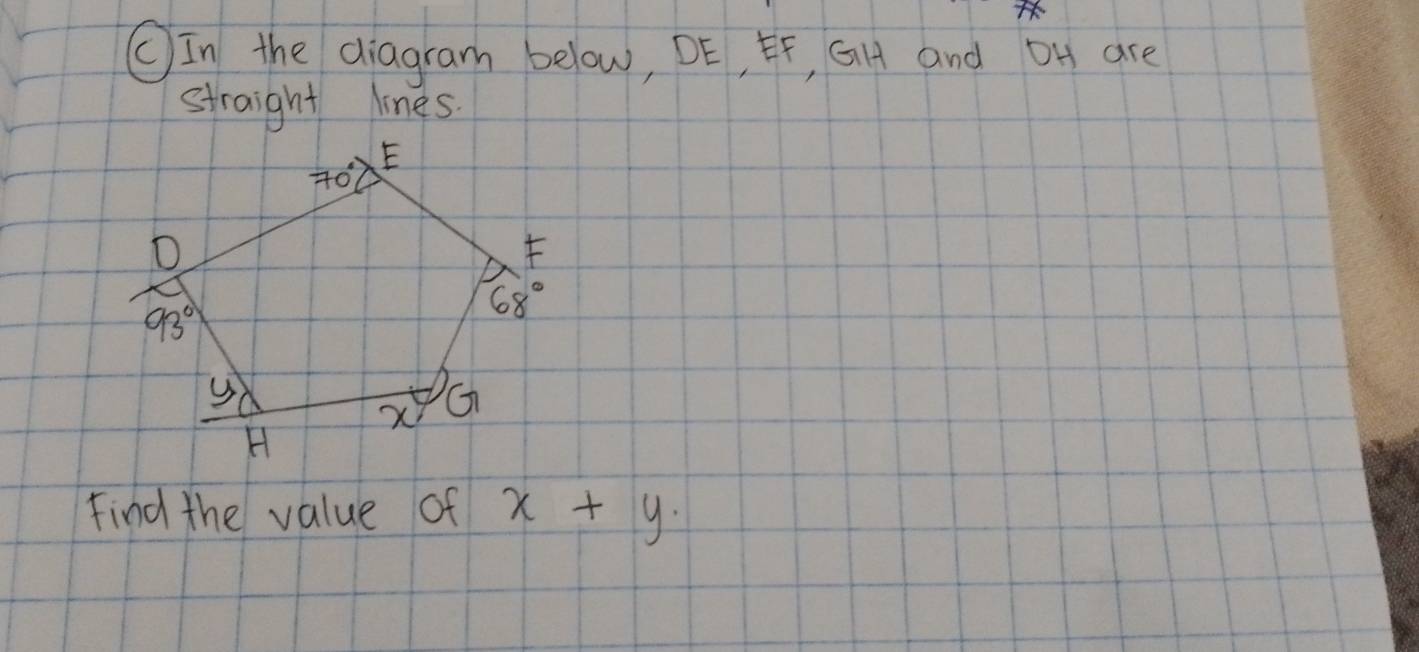 #
Ⓒ In the diagram below, DE, EF, GH and DH are
straight lines.
E
70°
D
F
68°
93°
y
x
G
H
Find the value of x + y.